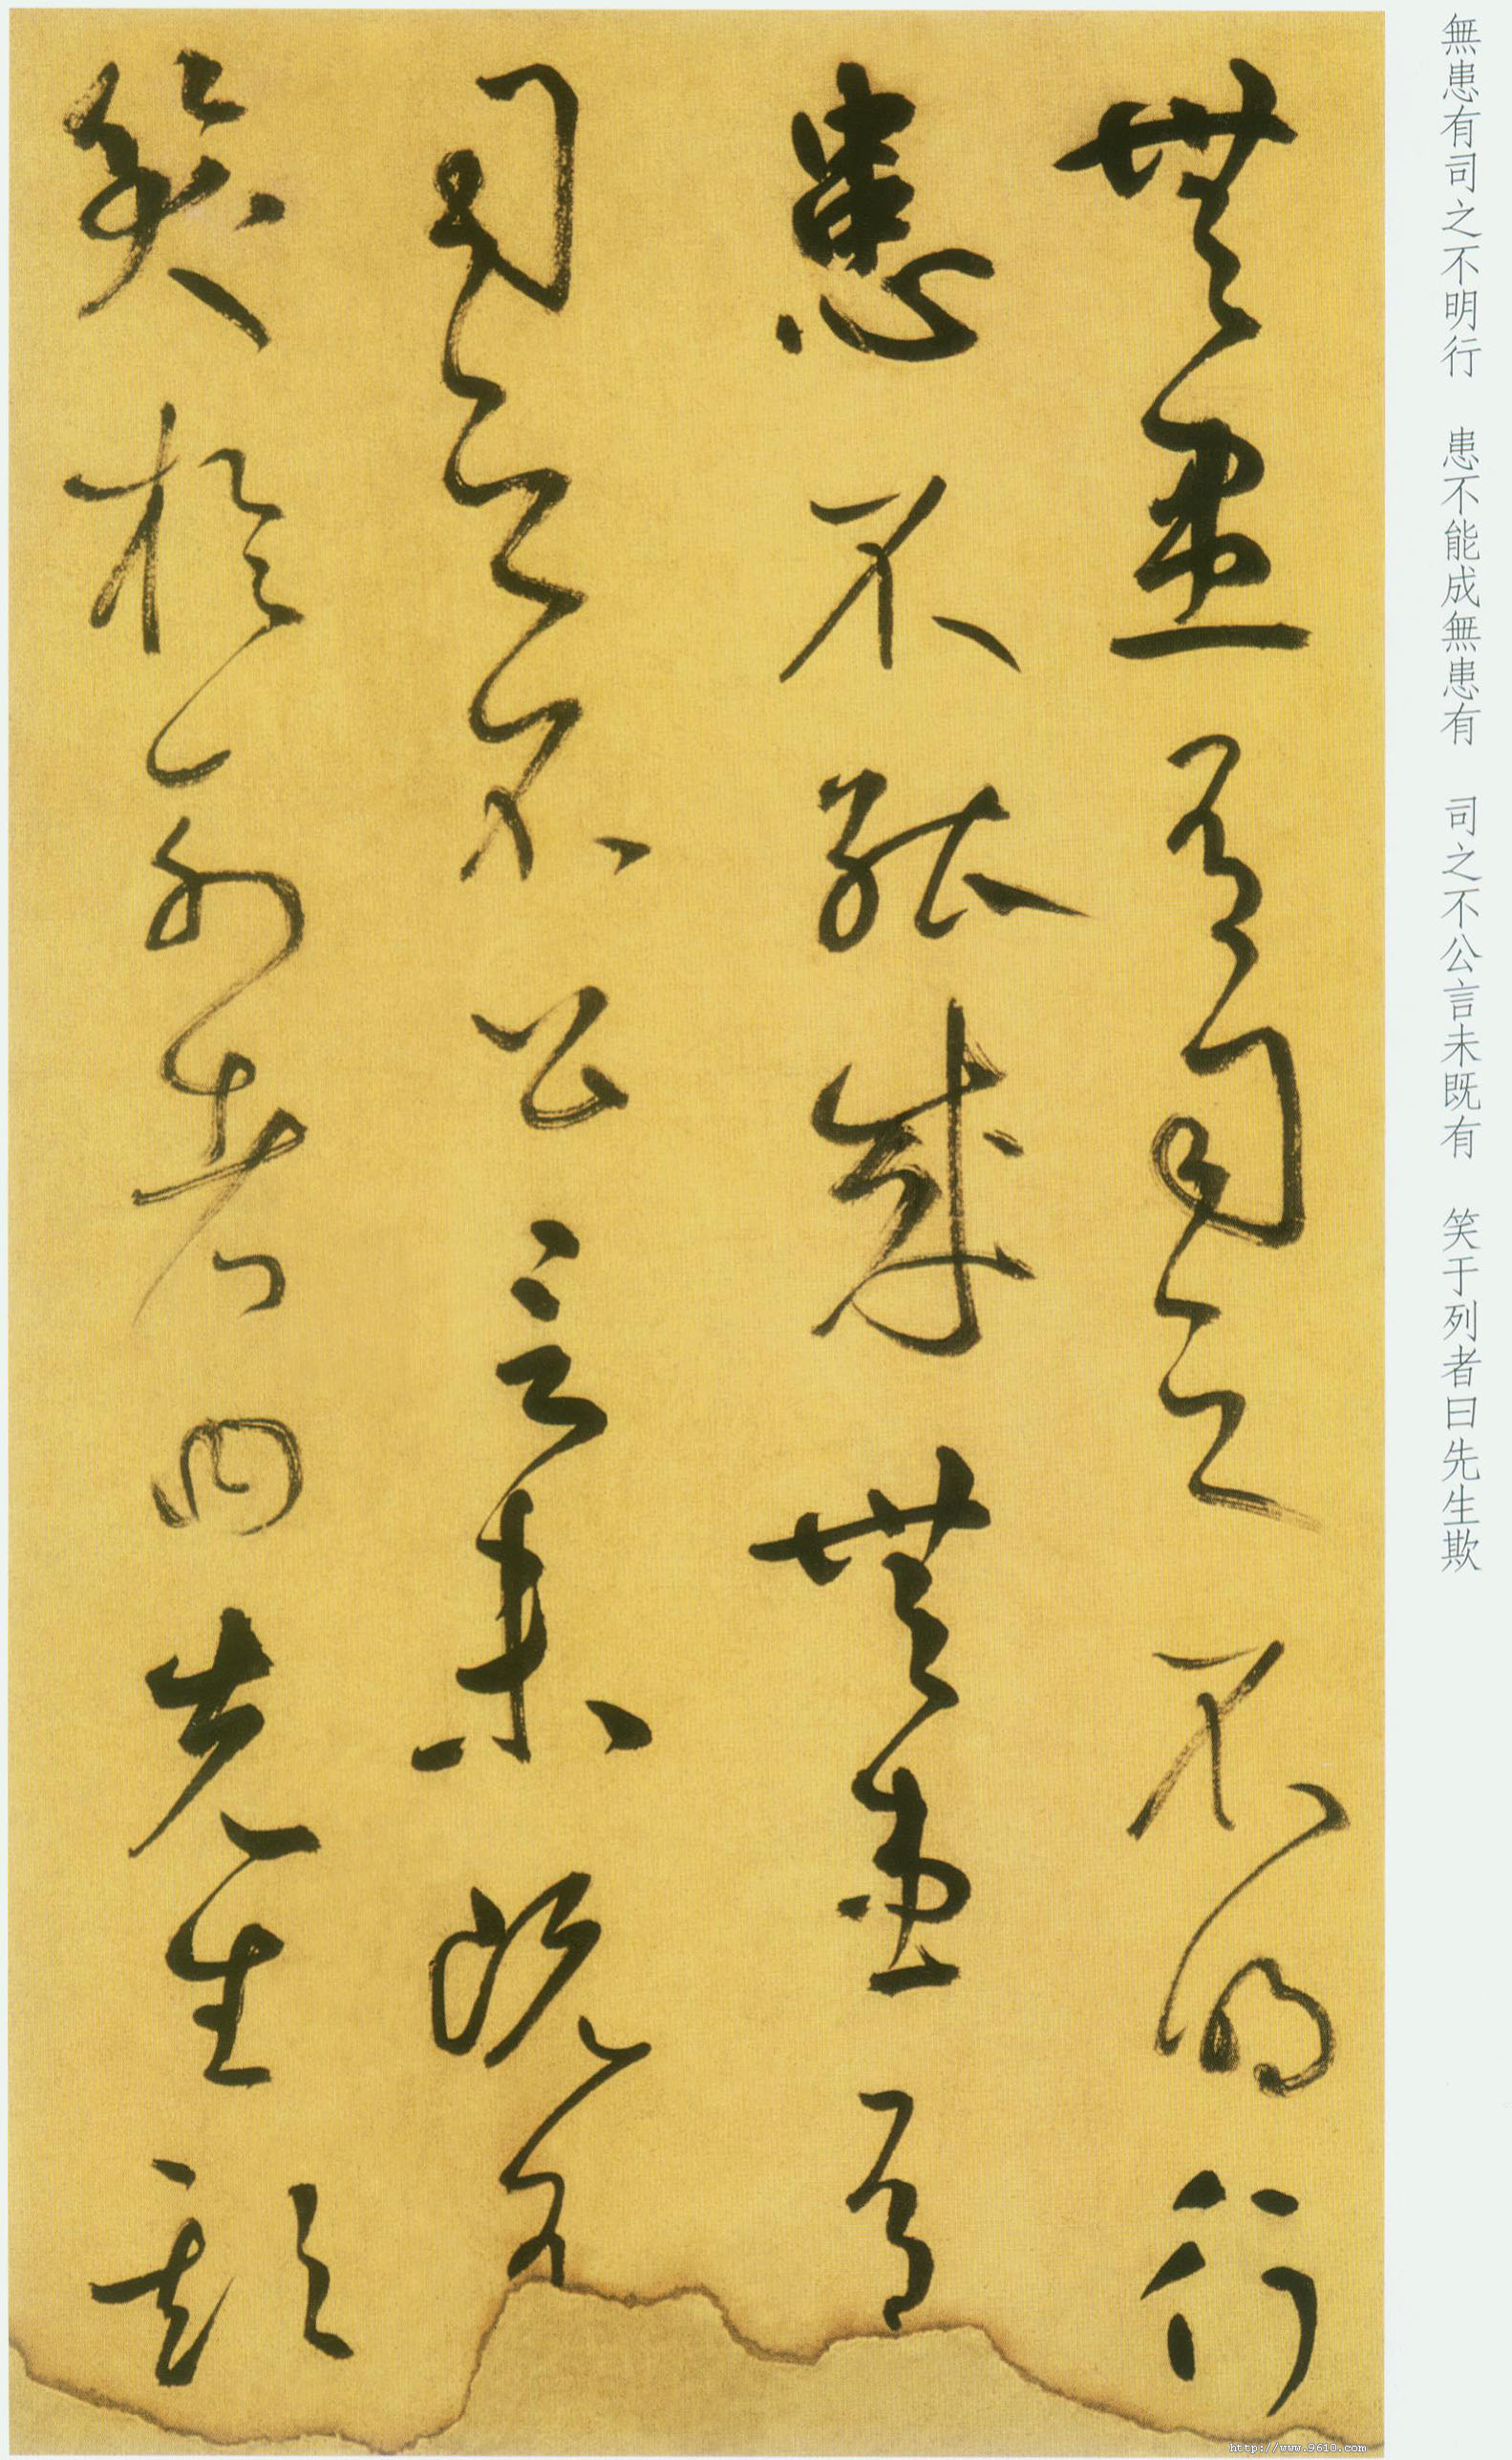 無患有司之不明行
患不能成無患有
司之不公言未既有
笑於列者曰先生欺
無患有司之不明行　患不能成無患有　司之不公言未既有　笑于列者曰先生欺
http://www.9610.com